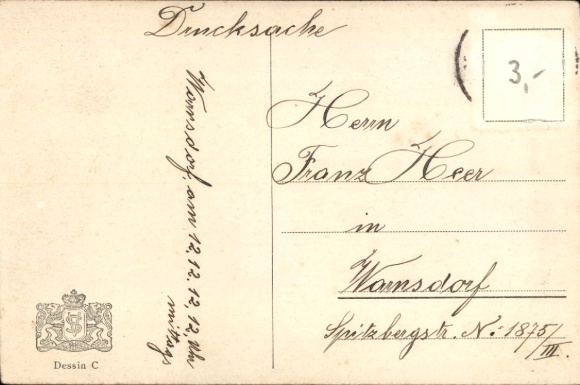 Drucksache
3,-
Warnsdorf. am 12. 12. 12. 12. Uhr
mittags
Herrn
Franz Heer
in
Warnsdorf
Spitzbergstr. No: 1875/III.
Dessin C